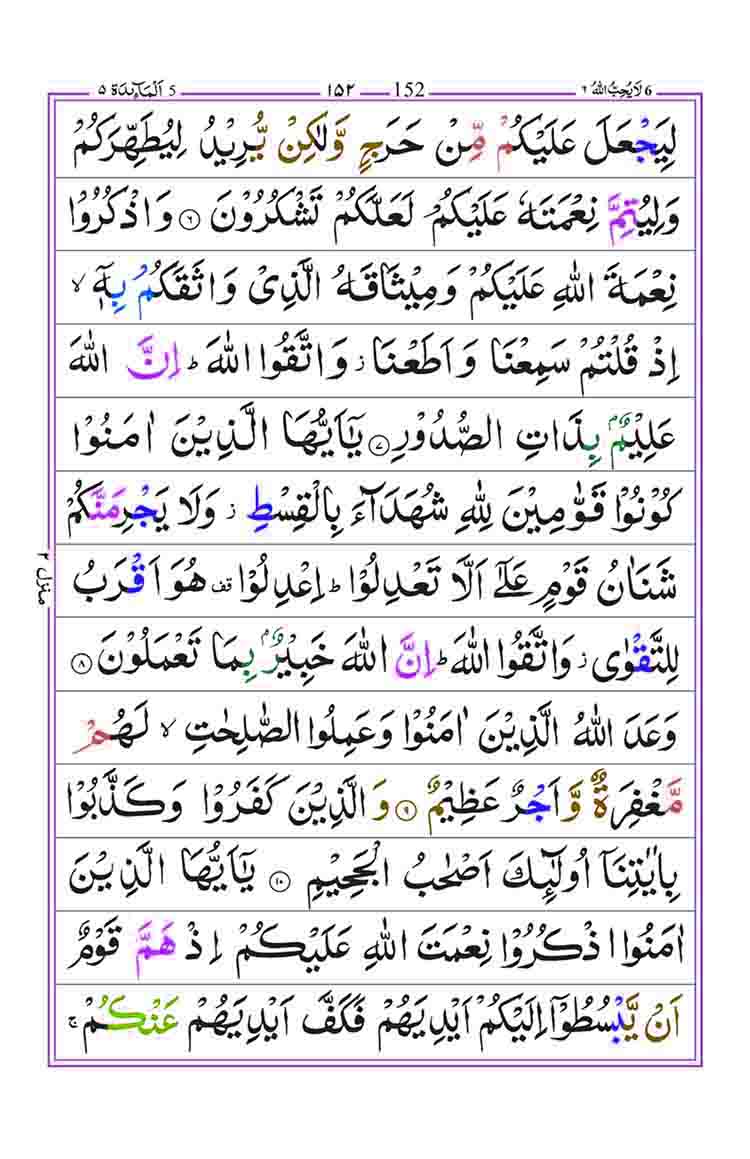 6 لَا يُحِبُّ اللّٰهُ ٦ 152 ١٥٢ 5 اَلْمَآئِدَة ٥
لِيَجْعَلَ عَلَيْكُمْ مِّنْ حَرَجٍ وَّلٰكِنْ يُّرِيْدُ لِيُطَهِّرَكُمْ
وَلِيُتِمَّ نِعْمَتَهٗ عَلَيْكُمْ لَعَلَّكُمْ تَشْكُرُوْنَ ۝۶ وَاذْكُرُوْا
نِعْمَةَ اللّٰهِ عَلَيْكُمْ وَمِيْثَاقَهُ الَّذِىْ وَاثَقَكُمْ بِهٖۤ ۙ
اِذْ قُلْتُمْ سَمِعْنَا وَاَطَعْنَا ز وَاتَّقُوا اللّٰهَ ؕ اِنَّ اللّٰهَ
عَلِيْمٌۢ بِذَاتِ الصُّدُوْرِ ۝۷ يٰۤاَيُّهَا الَّذِيْنَ اٰمَنُوْا
كُوْنُوْا قَوّٰمِيْنَ لِلّٰهِ شُهَدَآءَ بِالْقِسْطِ ز وَلَا يَجْرِمَنَّكُمْ
شَنَاٰنُ قَوْمٍ عَلٰٓى اَلَّا تَعْدِلُوْا ؕ اِعْدِلُوْا قف هُوَ اَقْرَبُ
لِلتَّقْوٰى ز وَاتَّقُوا اللّٰهَ ؕ اِنَّ اللّٰهَ خَبِيْرٌۢ بِمَا تَعْمَلُوْنَ ۝۸
وَعَدَ اللّٰهُ الَّذِيْنَ اٰمَنُوْا وَعَمِلُوا الصّٰلِحٰتِ ۙ لَهُمْ
مَّغْفِرَةٌ وَّاَجْرٌ عَظِيْمٌ ۝۹ وَالَّذِيْنَ كَفَرُوْا وَكَذَّبُوْا
بِاٰيٰتِنَاۤ اُولٰٓئِكَ اَصْحٰبُ الْجَحِيْمِ ۝۱۰ يٰۤاَيُّهَا الَّذِيْنَ
اٰمَنُوا اذْكُرُوْا نِعْمَتَ اللّٰهِ عَلَيْكُمْ اِذْ هَمَّ قَوْمٌ
اَنْ يَّبْسُطُوْۤا اِلَيْكُمْ اَيْدِيَهُمْ فَكَفَّ اَيْدِيَهُمْ عَنْكُمْ ۚ
منزل ٢